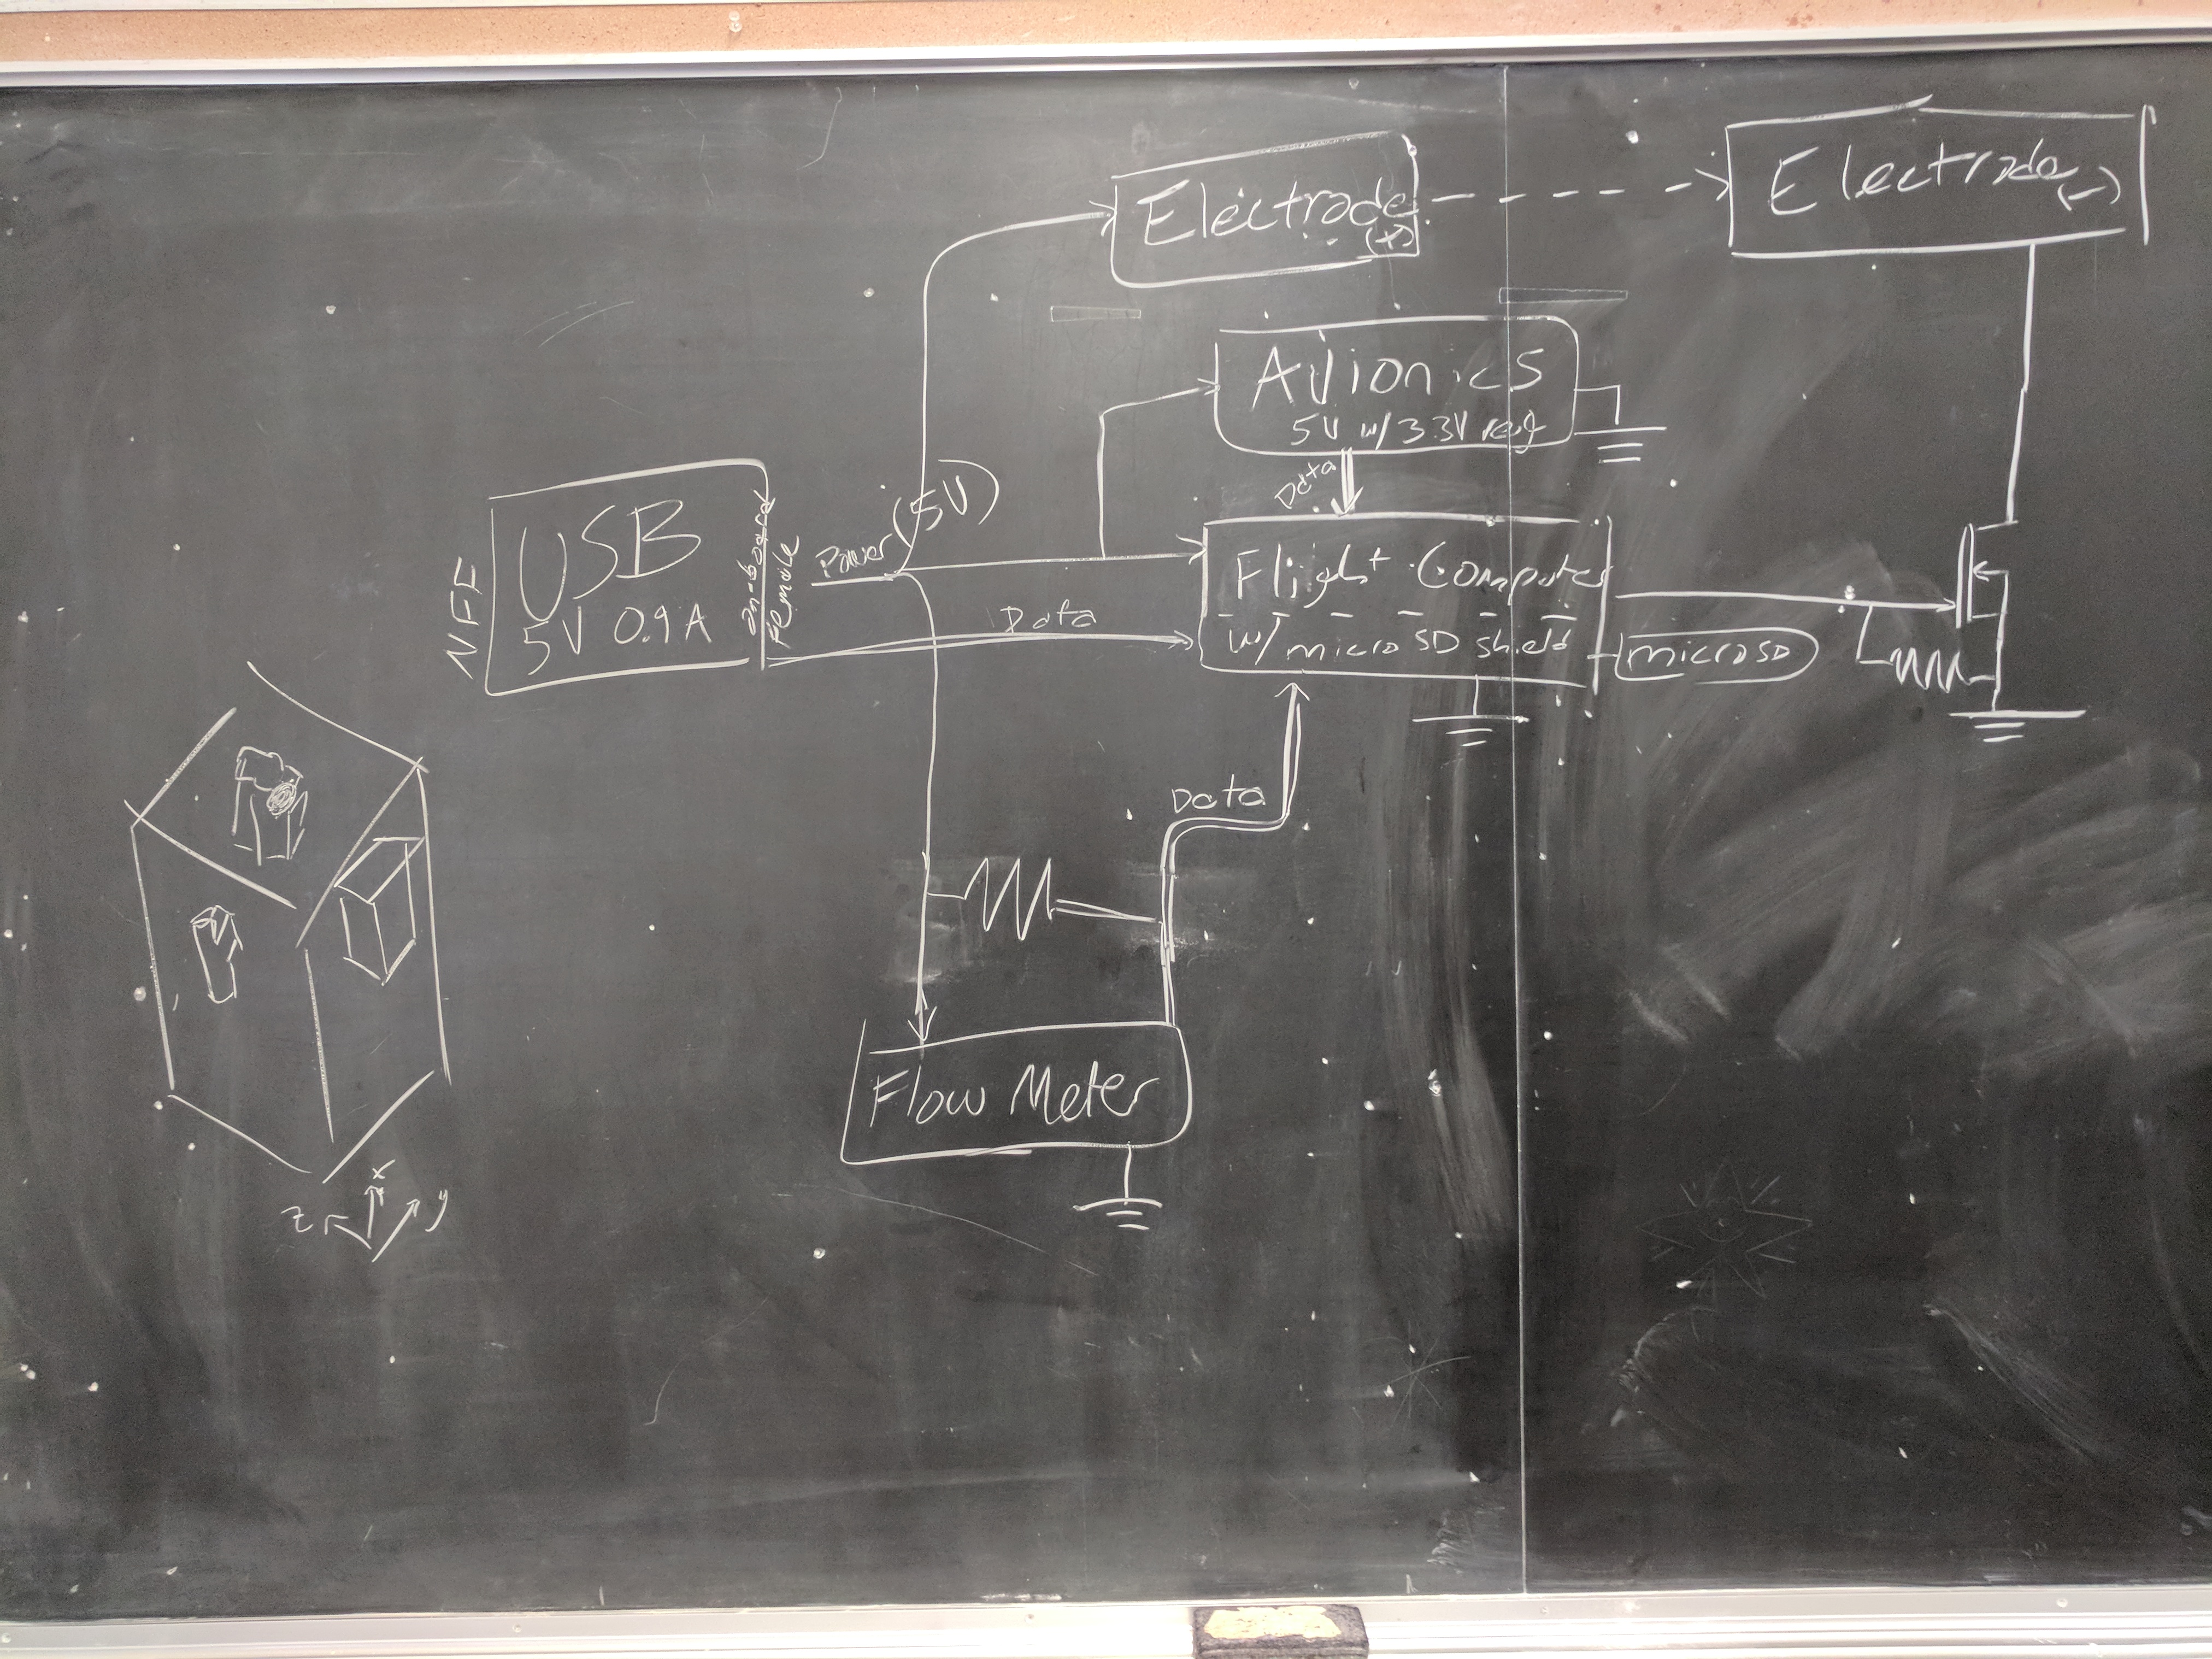 Electrode
(+)
Electrode
(-)
Avionics
5V w/ 3.3V reg
Data
NFF
USB
5V 0.9A
on-board
Female
Power
(5V)
Data
Flight Computer
w/ micro SD shield
microSD
Data
Flow Meter
x
z
y